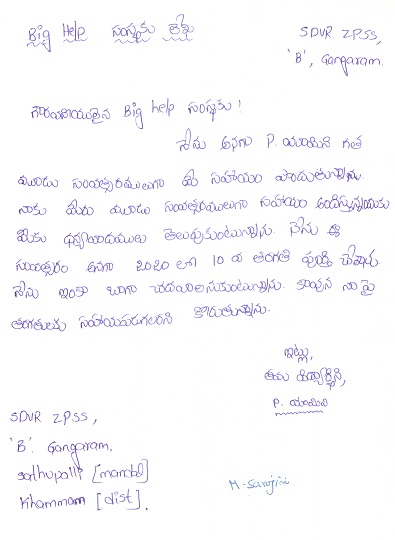 Big Help సంస్థకు లేఖ
SDVR ZPSS,
'B', Gangaram.
గౌరవనీయులైన Big help సంస్థకు!
నేను అనగా P. యామిని గత
మూడు సంవత్సరములుగా ఈ సహాయం పొందుతున్నాను.
నాకు మీరు మూడు సంవత్సరములుగా సహాయం అందిస్తున్నందుకు
మీకు ధన్యవాదములు తెలుపుకుంటున్నాను. నేను ఈ
సంవత్సరం అనగా 2020 లో 10 వ తరగతి పూర్తి చేశాను.
నేను ఇంకా బాగా చదవాలనుకుంటున్నాను. కావున నా పై
తరగతులకు సహాయపడగలరని కోరుతున్నాను.
ఇట్లు,
తమ విద్యార్థిని,
P. యామిని
SDVR ZPSS,
'B'. Gangaram.
Sathupalli [mandal]
Khammam [dist].
M. Sarojini